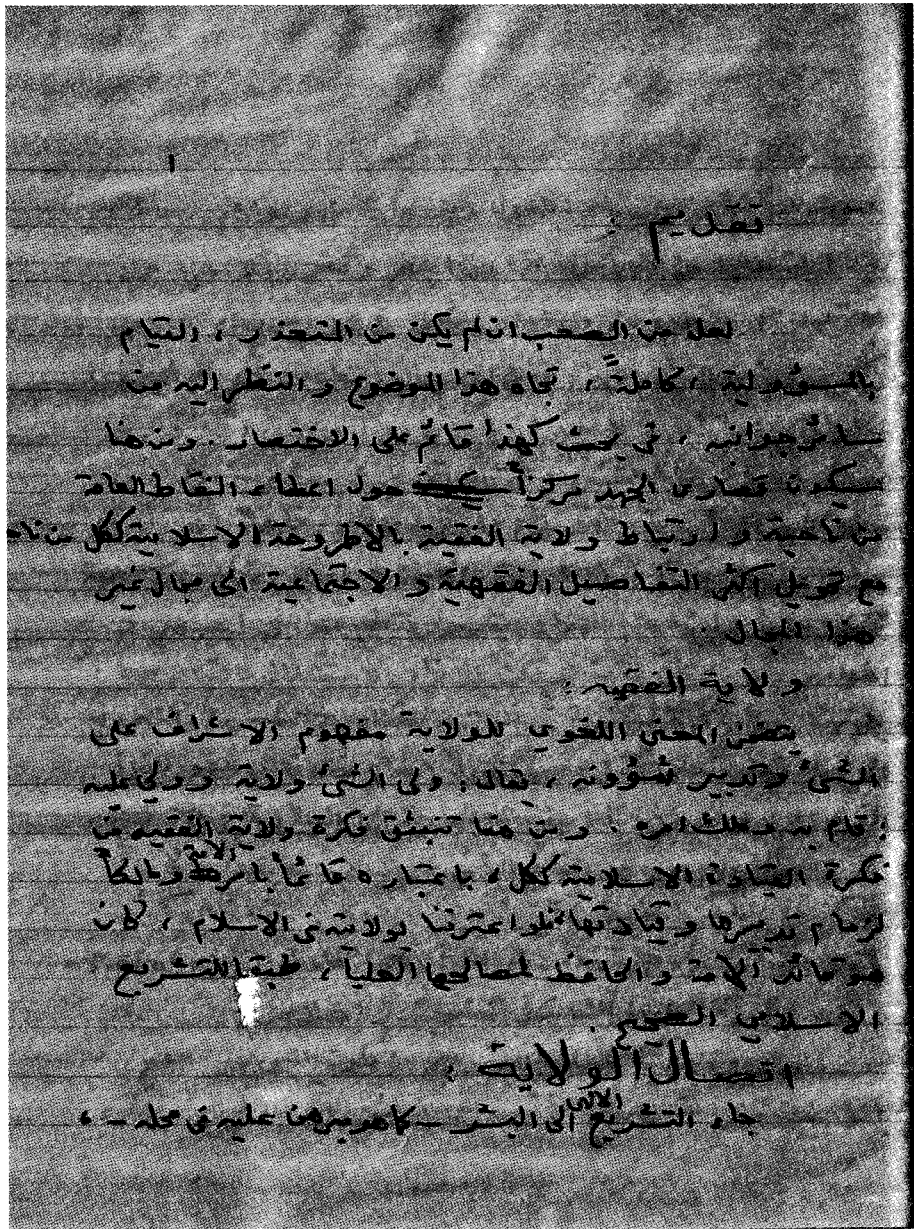 ١
تقديم :
لعل من الصعب ان لم يكن من المتعذر ، القيام
بالمسؤولية ، كاملةً ، تجاه هذا الموضوع و النظر إليه من
سائر جوانبه ، في بحث كهذا قائم على الاختصار . ومن هنا
سيكون قصارى الجهد مركزاً حول اعطاء النقاط العامة
من ناحية و ارتباط ولاية الفقيه بالاطروحة الاسلامية ككل من ناحـ
مع تحويل اكثر التفاصيل الفقهية و الاجتماعية الى مجال غير
هذا المجال .
ولاية الفقيه :
يتضمن المعنى اللغوي للولاية مفهوم الاشراف على
الشيء و تدبير شؤونه ، يقال : ولى الشيء ولاية و ولي عليه
: قام به و ملك امره . و من هنا تنبثق فكرة ولاية الفقيه من
فكرة القيادة الاسلامية ككل ، باعتباره قائماً بأمر الأمة و مالكاً
لزمام تدبيرها و قيادتها فلو اعترفنا بولايته في الاسلام ، كان
هو قائد الأمة و الحافظ لمصالحها العليا ، طبقا للتشريع
الاسلامي الصحيح .
اتصال الولاية :
جاء التشريع الالهي الى البشر – كما هو مبرهن عليه في محله – ،